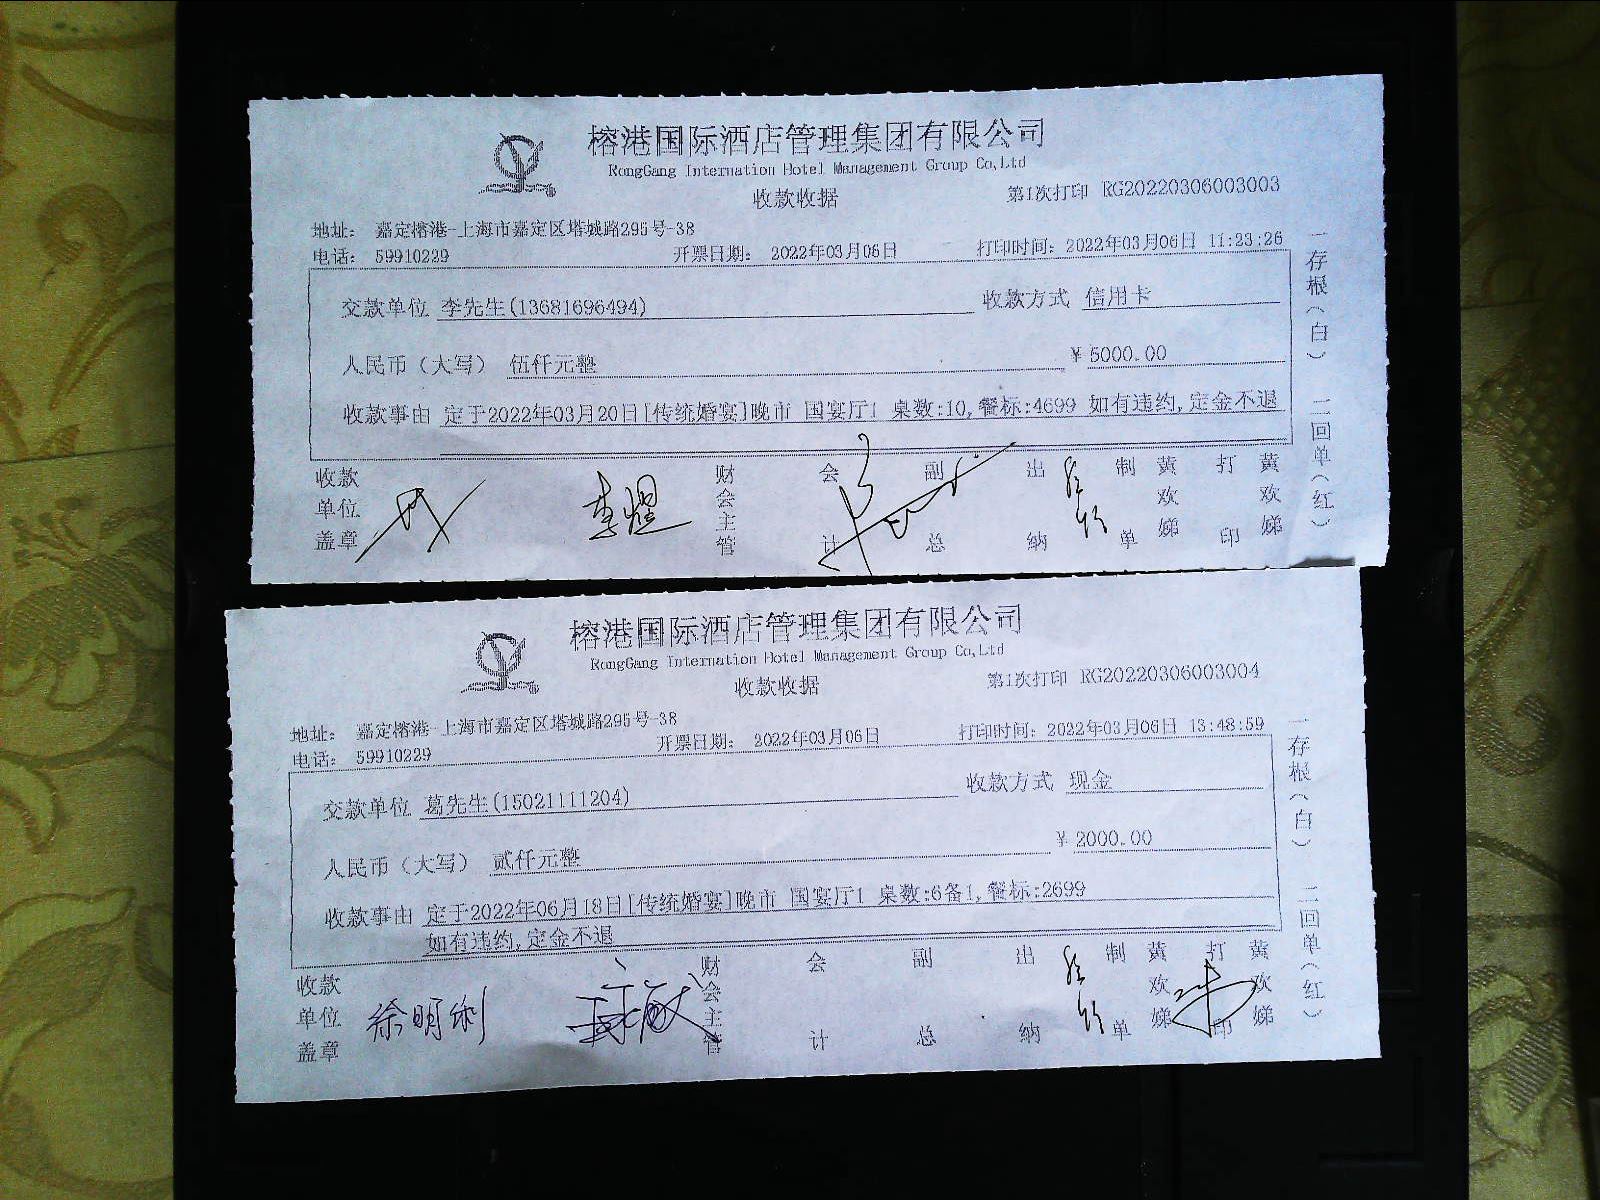 榕港国际酒店管理集团有限公司
RongGang Internation Hotel Management Group Co,Ltd
收款收据
第1次打印 RG20220306003003
地址： 嘉定榕港-上海市嘉定区塔城路295号-38
电话： 59910229 开票日期： 2022年03月06日 打印时间：2022年03月06日 11:23:26
交款单位 李先生(13681696494) 收款方式 信用卡
人民币（大写） 伍仟元整 ￥5000.00
收款事由 定于2022年03月20日[传统婚宴]晚市 国宴厅1 桌数:10,餐标:4699 如有违约,定金不退
收款单位盖章 李煜 财会主管 会计 副总 出纳 制单 黄欢娣 打印 黄欢娣
一存根（白） 二回单（红）
榕港国际酒店管理集团有限公司
RongGang Internation Hotel Management Group Co,Ltd
收款收据
第1次打印 RG20220306003004
地址： 嘉定榕港-上海市嘉定区塔城路295号-38
电话： 59910229 开票日期： 2022年03月06日 打印时间：2022年03月06日 13:48:59
交款单位 葛先生(15021111204) 收款方式 现金
人民币（大写） 贰仟元整 ￥2000.00
收款事由 定于2022年06月18日[传统婚宴]晚市 国宴厅1 桌数:6备1,餐标:2699
如有违约,定金不退
收款单位盖章 徐明利 财会主管 会计 副总 出纳 制单 黄欢娣 打印 黄欢娣
一存根（白） 二回单（红）